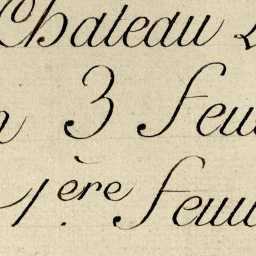 Chateau
3 feu
1ère feui